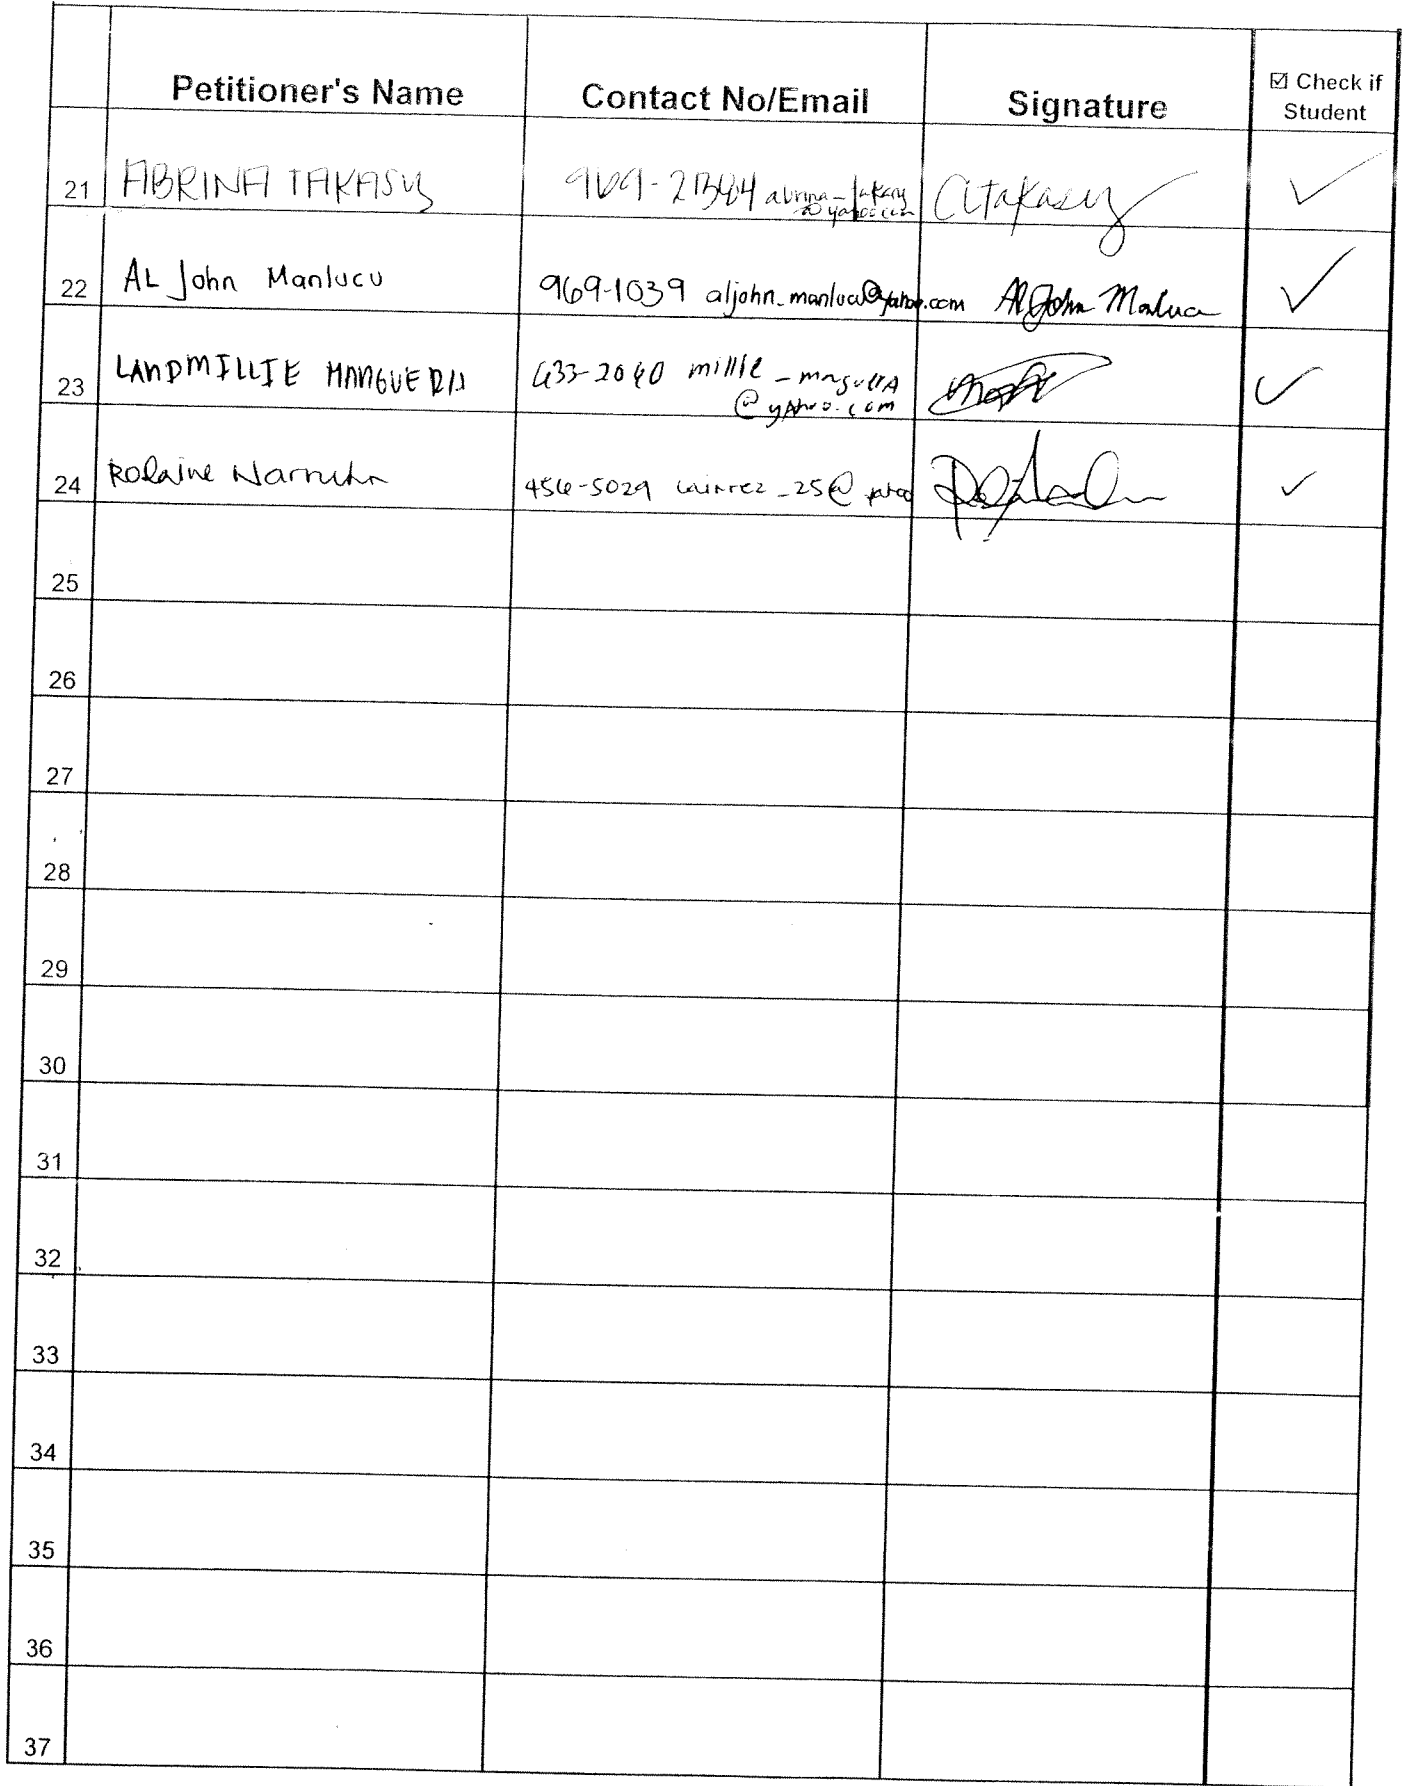 Petitioner's Name Contact No/Email Signature ☑ Check if
Student
21 ABRINA TAKASY 969- abrina_takasy ATakasy ✓
@yahoo.com
22 AL John Manlucu 969-1039 aljohn_manlucu@yahoo.com Al John Manlucu ✓
23 LANDMILLIE 433-2040 millie ✓
@yahoo.com
24 Rolaine 456-5029 _25@yahoo ✓
25
26
27
28
29
30
31
32
33
34
35
36
37